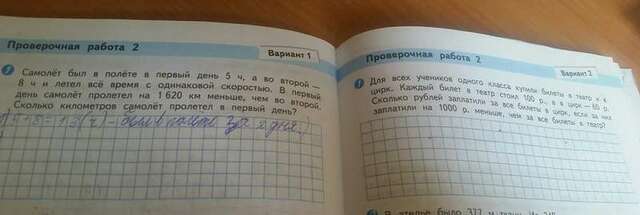 Проверочная работа 2
Вариант 1
1 Самолёт был в полёте в первый день 5 ч, а во второй —
8 ч и летел всё время с одинаковой скоростью. В первый
день самолёт пролетел на 1 620 км меньше, чем во второй.
Сколько километров самолёт пролетел в первый день?
5+8=13(ч) - был в полёте за 2 дня.
Проверочная работа 2
Вариант 2
1 Для всех учеников одного класса купили билеты в театр и в
цирк. Каждый билет в театр стоил 100 р., а в цирк — 60 р.
Сколько рублей заплатили за все билеты в цирк, если за них
заплатили на 1000 р. меньше, чем за все билеты в театр?
2 В ателье было 377 м ткани. Из